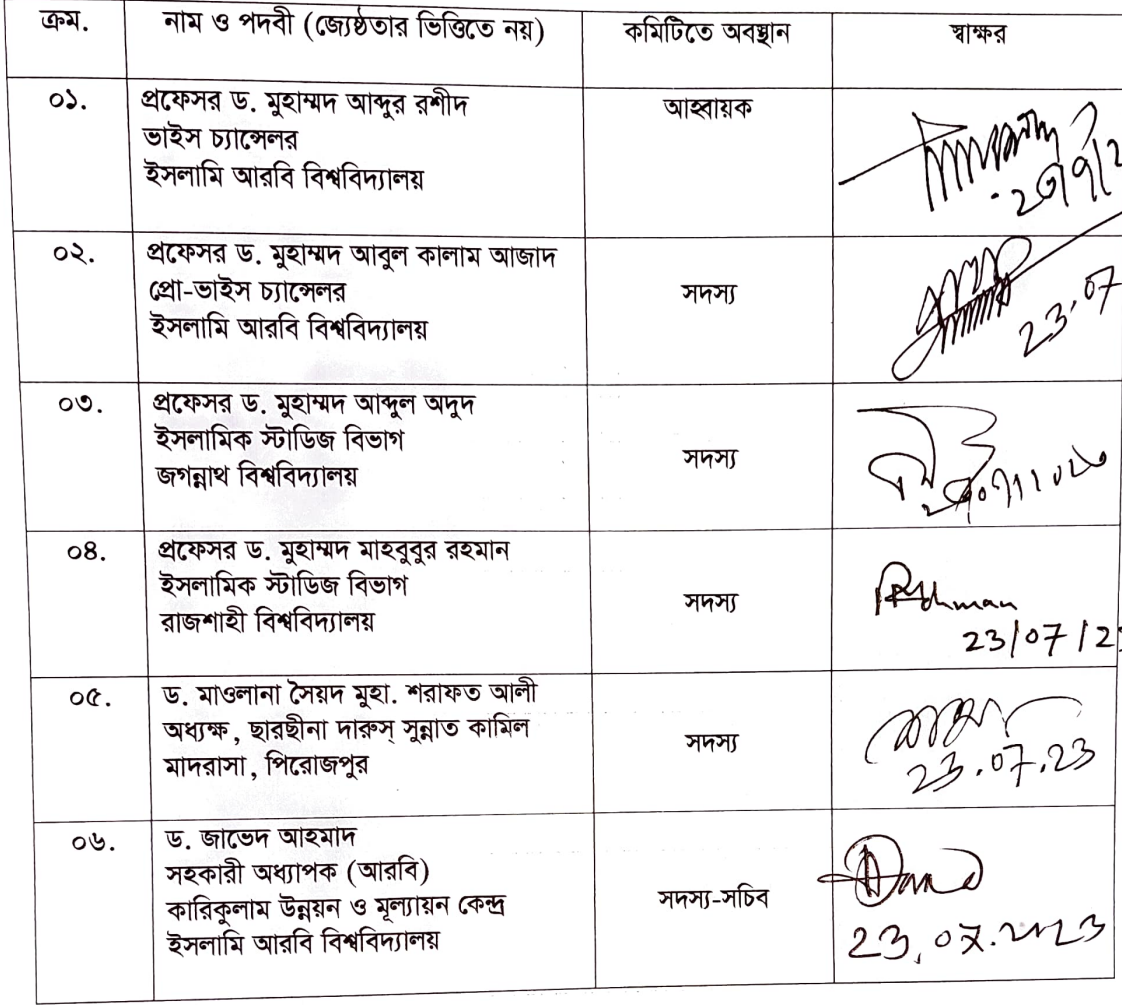 ক্রম. নাম ও পদবী (জ্যেষ্ঠতার ভিত্তিতে নয়) কমিটিতে অবস্থান স্বাক্ষর
০১. প্রফেসর ড. মুহাম্মদ আব্দুর রশীদ আহ্বায়ক
ভাইস চ্যান্সেলর
ইসলামি আরবি বিশ্ববিদ্যালয়
০২. প্রফেসর ড. মুহাম্মদ আবুল কালাম আজাদ
প্রো-ভাইস চ্যান্সেলর সদস্য
ইসলামি আরবি বিশ্ববিদ্যালয় 23.07
০৩. প্রফেসর ড. মুহাম্মদ আব্দুল অদুদ
ইসলামিক স্টাডিজ বিভাগ সদস্য
জগন্নাথ বিশ্ববিদ্যালয়
০৪. প্রফেসর ড. মুহাম্মদ মাহবুবুর রহমান
ইসলামিক স্টাডিজ বিভাগ সদস্য Rahman
রাজশাহী বিশ্ববিদ্যালয় 23/07/23
০৫. ড. মাওলানা সৈয়দ মুহা. শরাফত আলী
অধ্যক্ষ, ছারছীনা দারুস্ সুন্নাত কামিল সদস্য
মাদরাসা, পিরোজপুর 23.07.23
০৬. ড. জাভেদ আহমাদ
সহকারী অধ্যাপক (আরবি)
কারিকুলাম উন্নয়ন ও মূল্যায়ন কেন্দ্র সদস্য-সচিব
ইসলামি আরবি বিশ্ববিদ্যালয় 23.07.2023